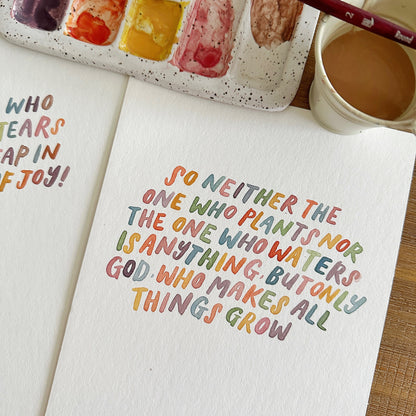 WHO
TEARS
AP IN
OF JOY!
SO NEITHER THE
ONE WHO PLANTS NOR
THE ONE WHO WATERS
IS ANYTHING, BUT ONLY
GOD, WHO MAKES ALL
THINGS GROW
2
Round